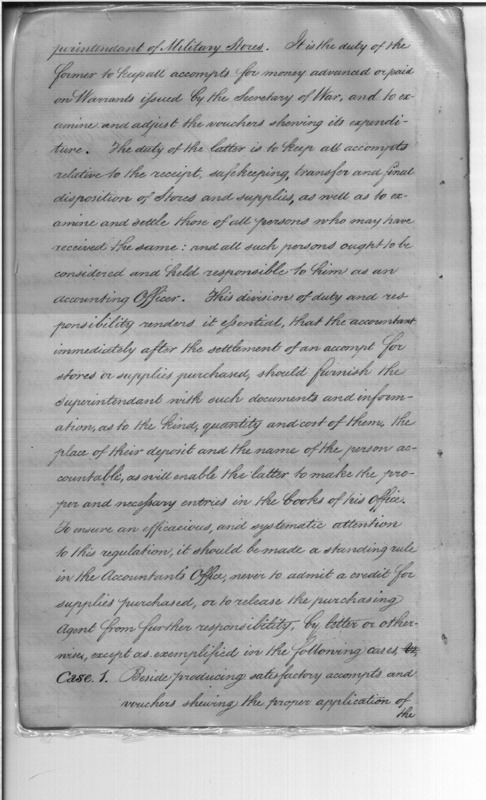 perintendant of Military Stores. It is the duty of the
former to keep all accompts for money advanced or paid
on Warrants issued by the Secretary of War, and to ex-
amine and adjust the vouchers shewing its expendi-
ture. The duty of the latter is to keep all accompts
relative to the receipt, safekeeping, transfer and final
disposition of Stores and supplies, as well as to ex-
amine and settle those of all persons who may have
received the same: and all such persons ought to be
considered and held responsible to him as an
accounting Officer. This division of duty and res-
ponsibility renders it essential, that the accountant
immediately after the settlement of an accompt for
stores or supplies purchased, should furnish the
Superintendant with such documents and inform-
ation, as to the kind, quantity and cost of them, the
place of their deposit and the name of the person ac-
countable, as will enable the latter to make the pro-
per and necessary entries in the books of his Office.
To ensure an efficacious, and systematic attention
to this regulation, it should be made a standing rule
in the Accountants Office, never to admit a credit for
supplies purchased, or to release the purchasing
Agent from further responsibility, by letter or other-
wise, except as exemplified in the following cases
Case. 1. Beside producing satisfactory accompts and
vouchers shewing the proper application of
the